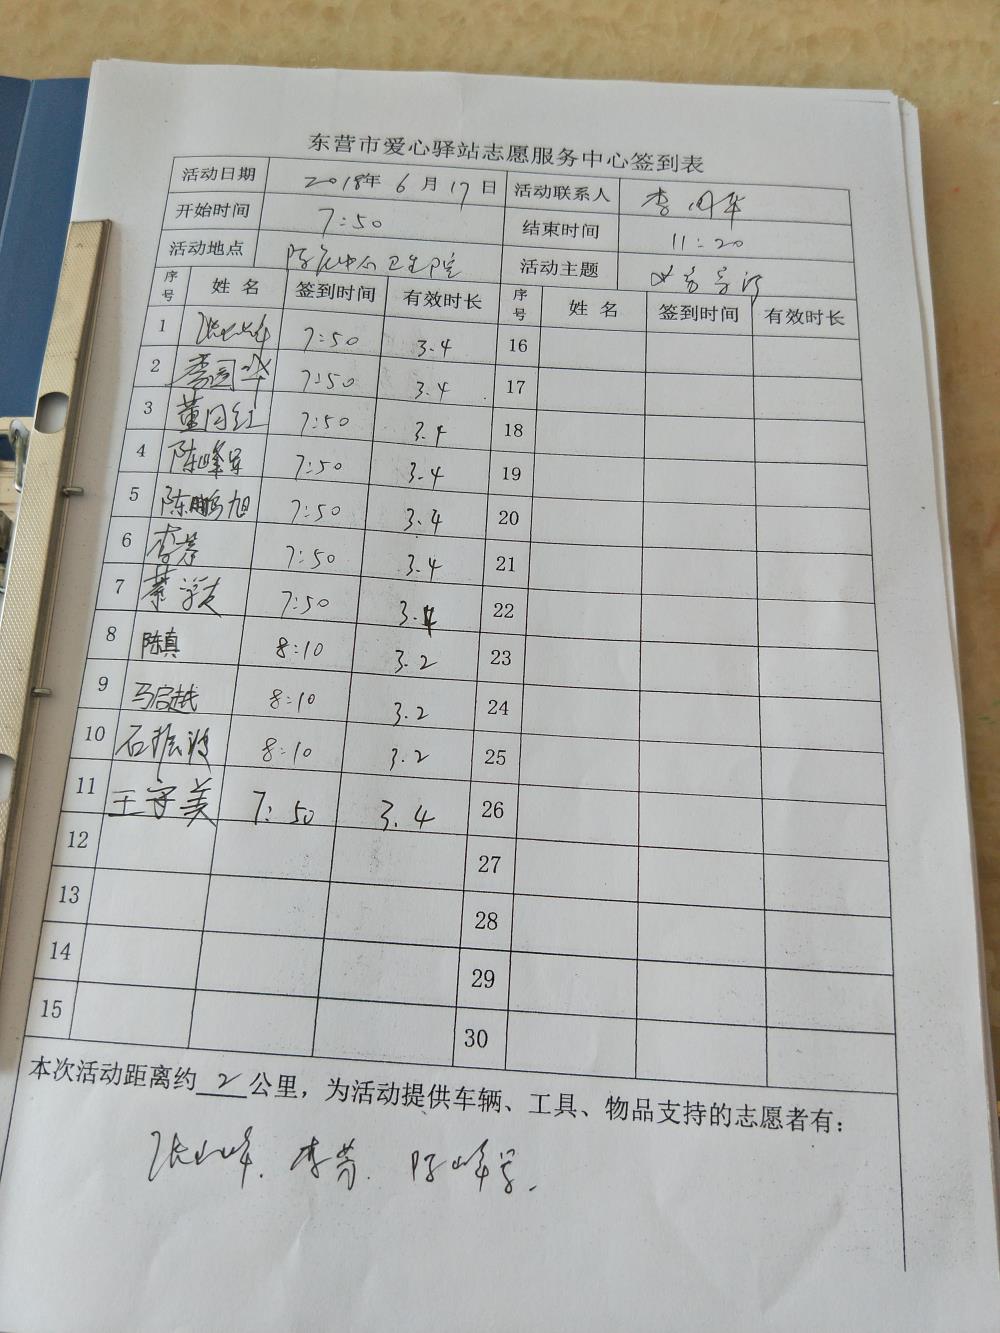 东营市爱心驿站志愿服务中心签到表
活动日期 2018年 6 月 17 日 活动联系人 李同华
开始时间 7:50 结束时间 11:20
活动地点 中心卫生院 活动主题
序号 姓 名 签到时间 有效时长 序号 姓 名 签到时间 有效时长
1 7:50 3.4 16
2 李同华 7:50 3.4 17
3 董同红 7:50 3.4 18
4 陈峰军 7:50 3.4 19
5 陈鹏旭 7:50 3.4 20
6 李芳 7:50 3.4 21
7 7:50 3.4 22
8 陈真 8:10 3.2 23
9 马启越 8:10 3.2 24
10 石振波 8:10 3.2 25
11 王守美 7:50 3.4 26
12 27
13 28
14 29
15 30
本次活动距离约 2 公里，为活动提供车辆、工具、物品支持的志愿者有：
李芳.